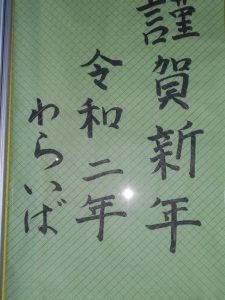 謹賀新年
令和二年
わらいば